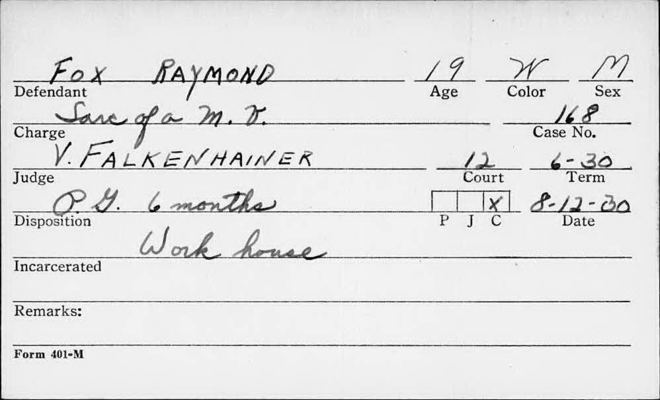 FOX RAYMOND 19 W M
Defendant Age Color Sex
Larc of a M. V. 168
Charge Case No.
V. FALKENHAINER 12 6-30
Judge Court Term
P.G. 6 months X 8-12-30
Disposition P J C Date
Work house
Incarcerated
Remarks:
Form 401-M